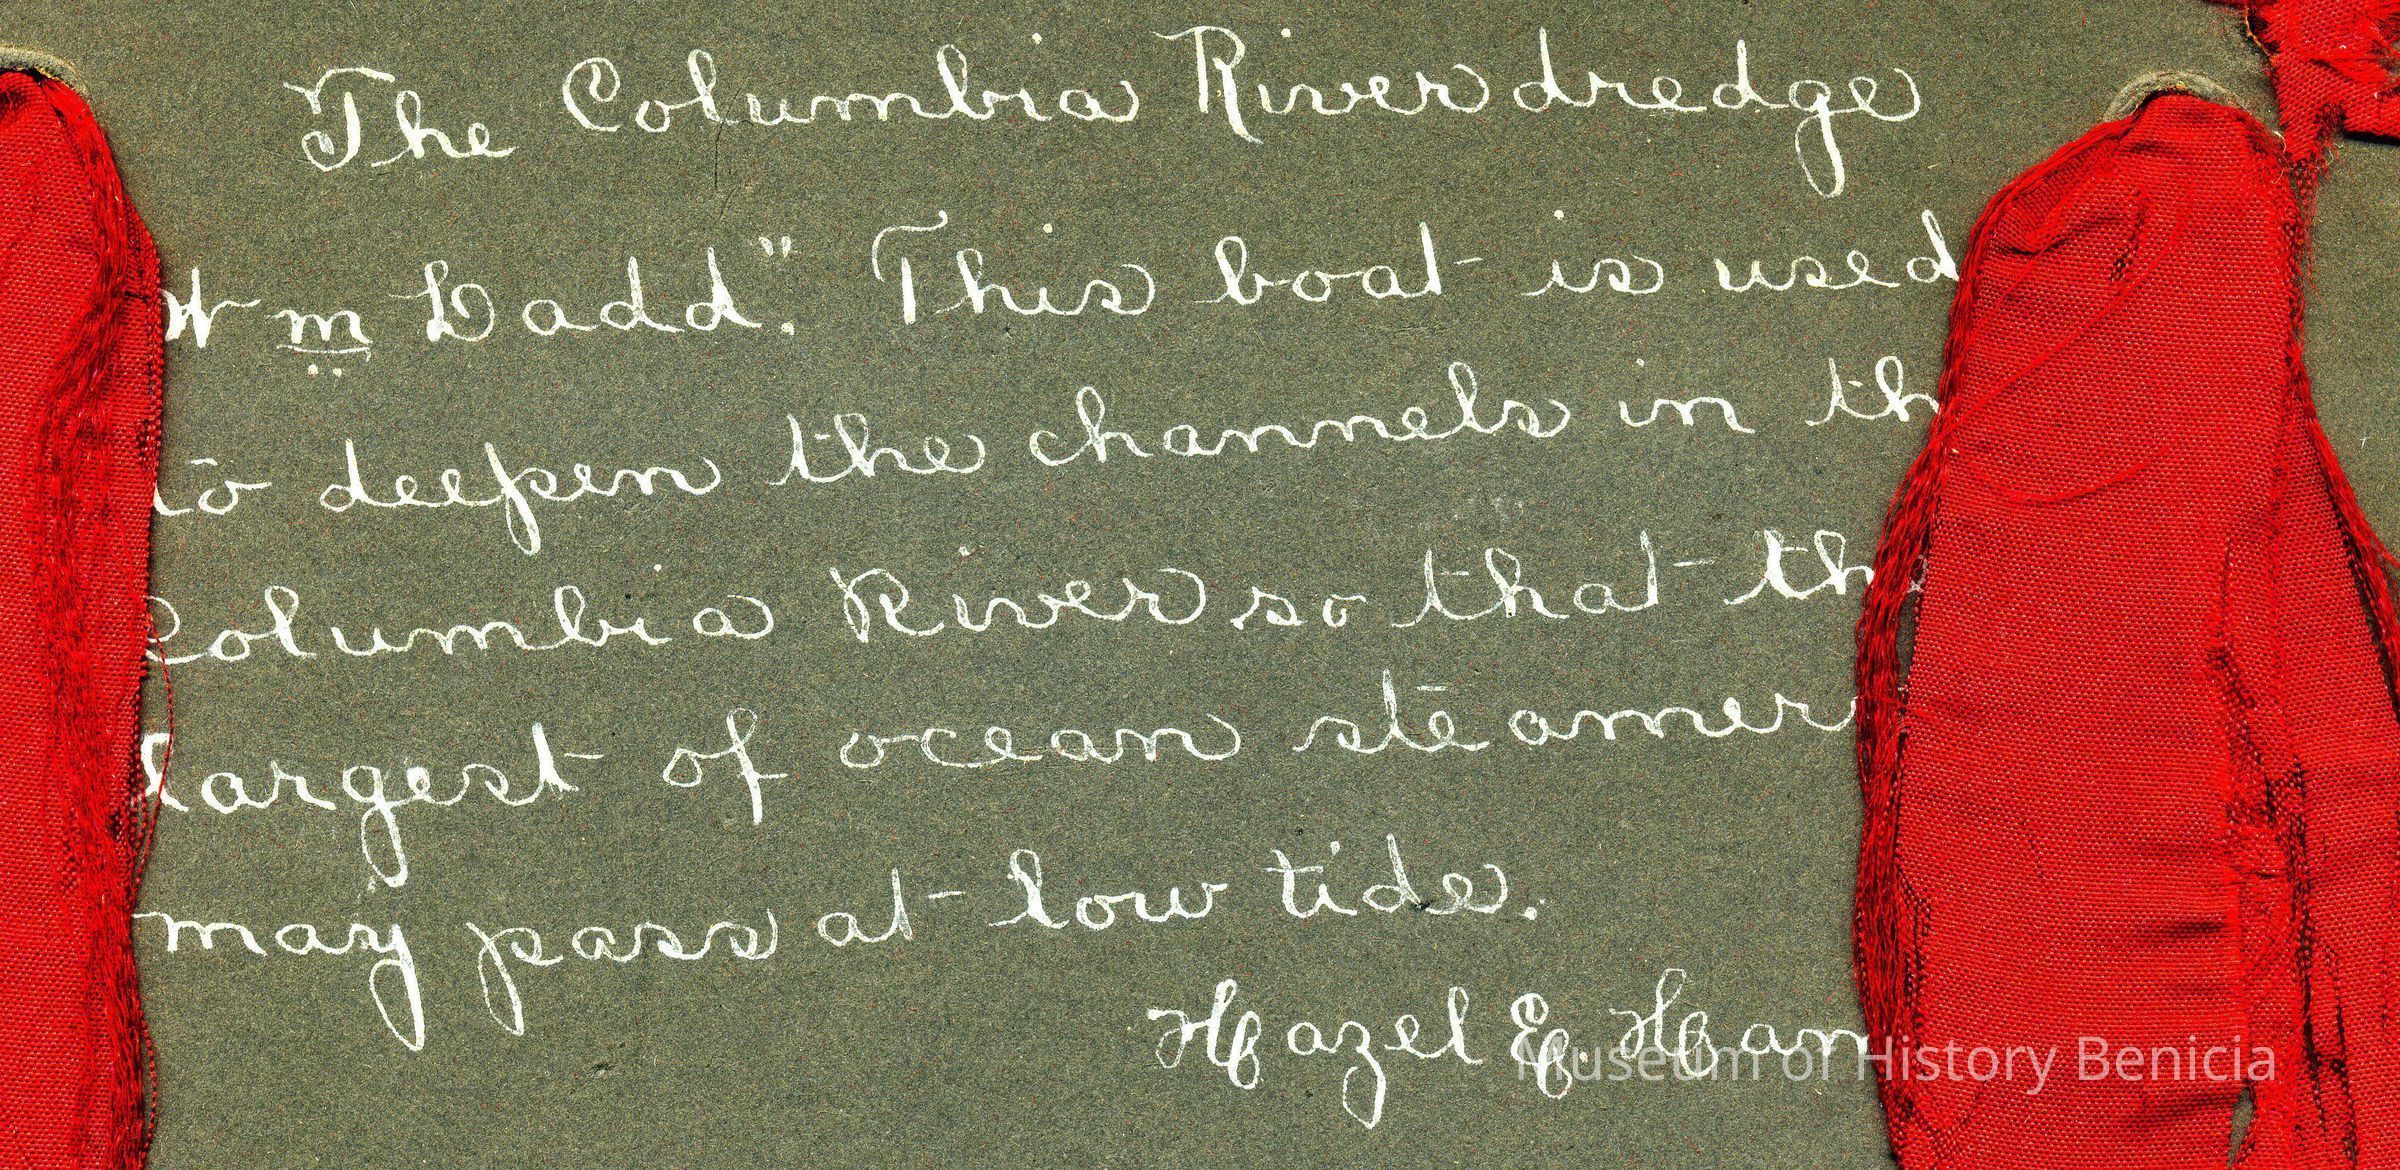 The Columbia River dredge
Wm Ladd." This boat is used
to deepen the channels in th
Columbia River so that the
largest of ocean steamer
may pass at low tide.
Hazel E. Han
Museum of History Benicia